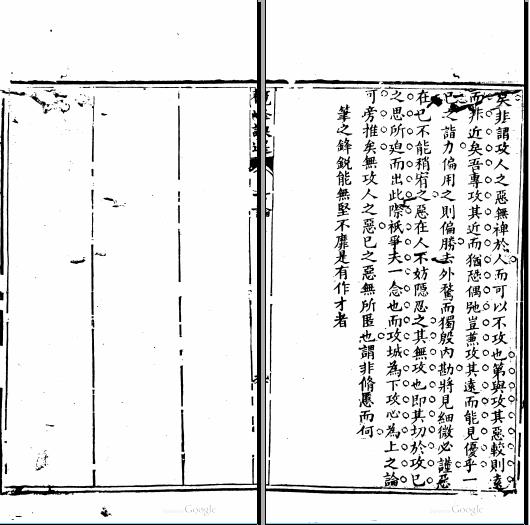 莫非謂攻人之惡無裨於人而可以不攻也第與攻其惡較則遠
而非近矣吾專攻其近而猶恐偶弛豈兼攻其遠而能見優乎一
已之詣力偏用之則偏勝去外騖而獨殷内勘將見細微必謹惡
在已不能稍宥之惡在人不妨隱忍之其無攻也即其切於攻已
之思所迫而出此際祇爭夫一念也而攻城為下攻心為上之論
可旁推矣無攻人之惡已之惡無所匿也謂非脩慝而何
筆之鋒銳能無堅不靡是有作才者
Google
Google